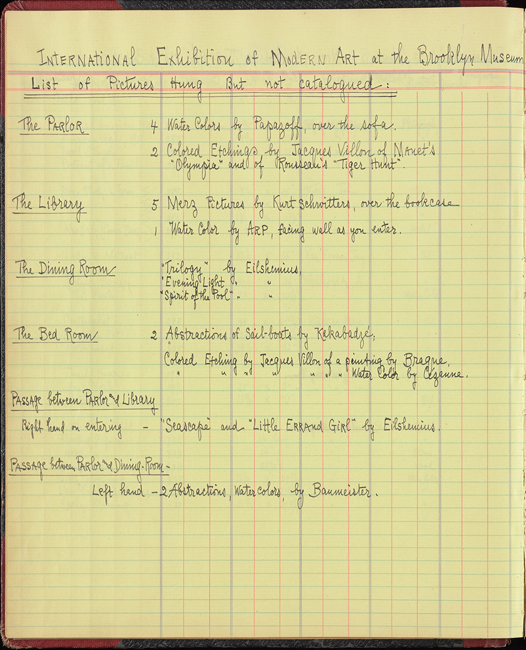 International Exhibition of Modern Art at the Brooklyn Museum
List of Pictures Hung But not catalogued:
The Parlor 4 Water Colors by Papazoff, over the sofa.
2 Colored Etchings by Jacques Villon of Manet's
"Olympia" and of Rousseau's "Tiger Hunt".
The Library 5 Merz Pictures by Kurt Schwitters, over the bookcase
1 Water Color by Arp, facing wall as you enter.
The Dining Room "Trilogy" by Eilshemius,
"Evening Light " "
"Spirit of the Pool" " "
The Bed Room 2 Abstractions of Sail-boats by Kakabadzé,
Colored Etching by Jacques Villon of a painting by Braque,
" " " " " " " Water Color by Cézanne.
Passage between Parlor and Library
Right hand on entering – "Seascape" and "Little Errand Girl" by Eilshemius.
Passage between Parlor and Dining-Room –
Left hand – 2 Abstractions, Water colors, by Baumeister.